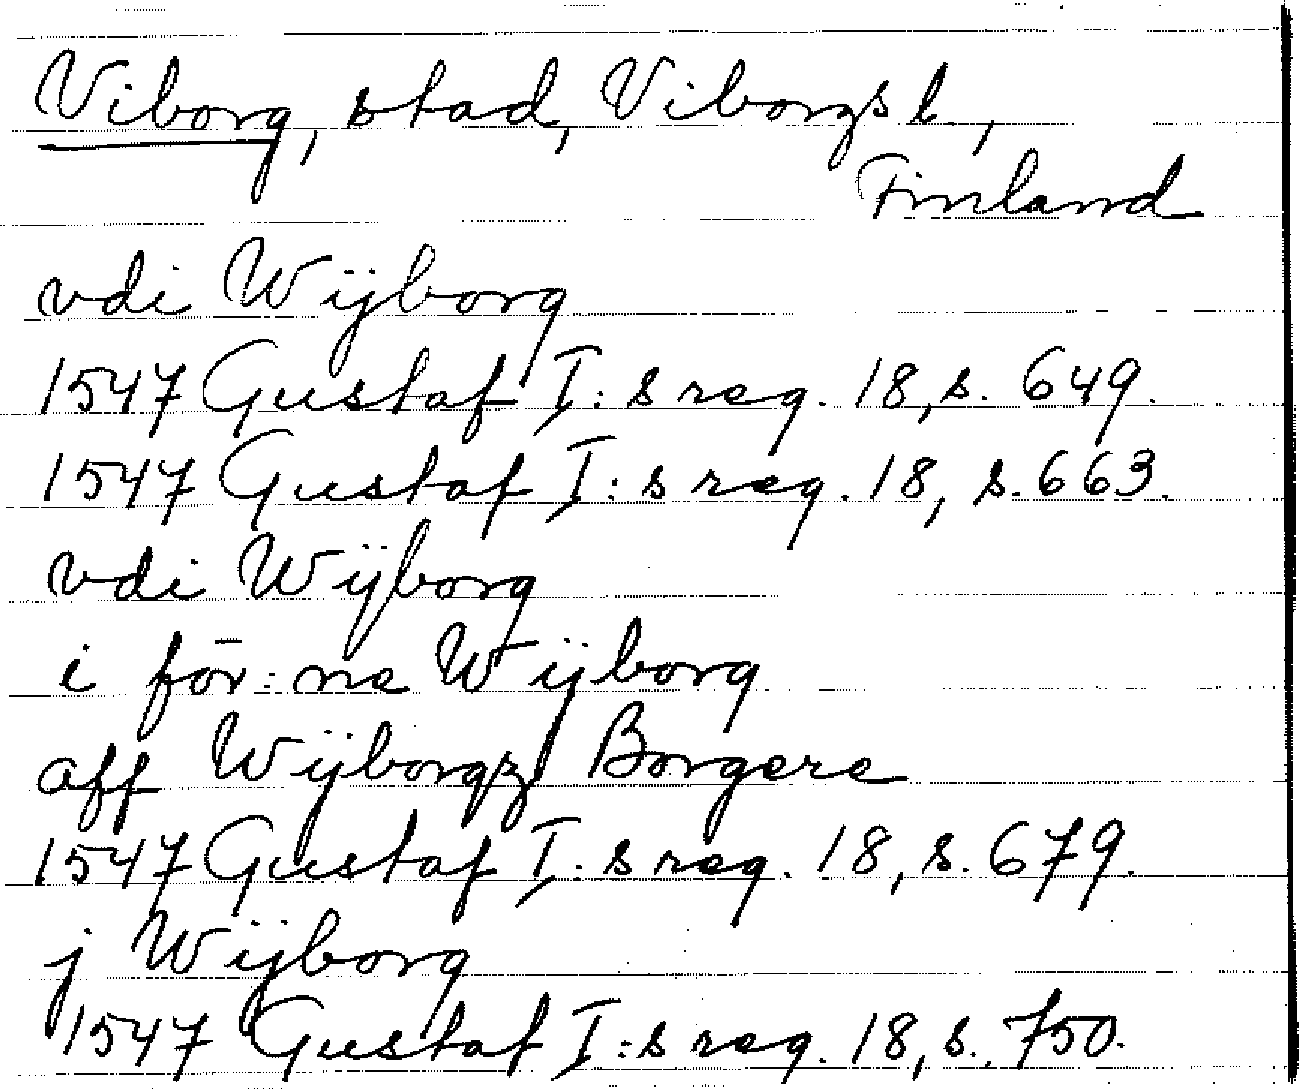 Viborg, stad, Viborgs l,
Finland
vdi Wijborg
1547 Gustaf I:s reg. 18, s. 649.
1547 Gustaf I:s reg. 18, s. 663.
vdi Wijborg
i för:ne Wijborg
aff Wijborgz Borgere
1547 Gustaf I:s reg. 18, s. 679.
j Wijborg
1547 Gustaf I:s reg. 18, s. 750.